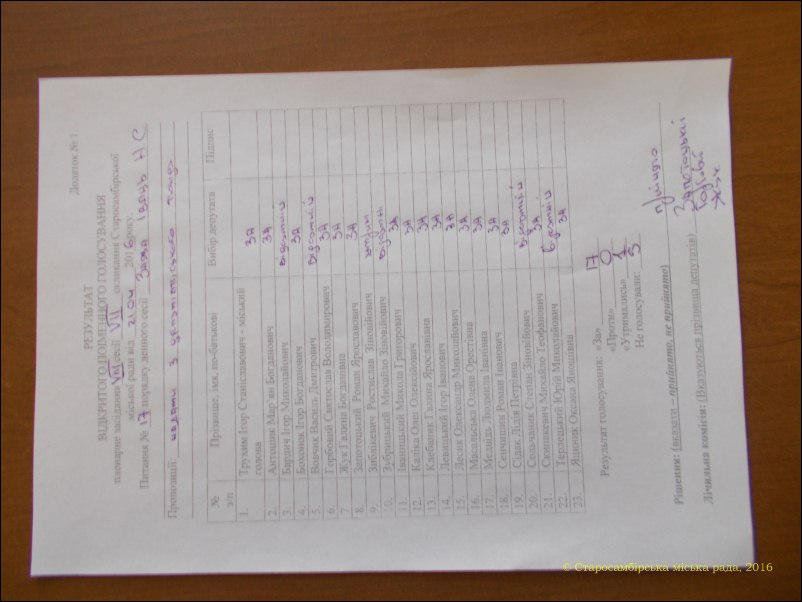 Додаток № 1
РЕЗУЛЬТАТ
ВІДКРИТОГО ПОІМЕННОГО ГОЛОСУВАННЯ
пленарне засідання VIII сесії VII скликання Старосамбірської
міської ради від 21.04 2016 року.
Питання № 17 порядку денного сесії Заява Іваць Н С
Пропозиції: надати з депутатського фонду
№ з/п Прізвище, імя, по-батькові Вибір депутата Підпис
1. Трухим Ігор Станіславович - міський голова ЗА
2. Антошик Мар'ян Богданович ЗА
3. Бардич Ігор Миколайович відсутній
4. Бохонок Ігор Богданович ЗА
5. Вовчик Василь Дмитрович відсутній
6. Горбовий Святослав Володимирович ЗА
7 Жук Галина Богданівна ЗА
8. Запотоцький Роман Ярославович ЗА
9. Зиблікевич Ростислав Зіновійович
10. Зубрицький Михайло Зіновійович відсутній
11. Іваницький Микола Григорович ЗА
12. Каліка Олег Олексійович ЗА
13. Клебаник Галина Ярославівна ЗА
14. Левицький Ігор Іванович ЗА
15. Лесик Олександр Миколайович ЗА
16. Масальська Олена Орестівна ЗА
17. Меладзь Людмила Іванівна ЗА
18. Сенчишин Роман Іванович ЗА
19. Сідак Лілія Петрівна ЗА
20. Сольчаник Степан Зіновійович відсутній
21. Скиникевич Михайло Теофанович ЗА
22. Терлецький Юрій Миколайович відсутній
23. Яценик Оксана Яношівна ЗА
Результат голосування: «За» 17
«Проти» 0
«Утримались» 1
Не голосували: 5
Рішення: (вказати – прийнято, не прийнято) прийнято
Лічильна комісія: (Вказуються прізвища депутатів) Запотоцький
Горбовий
Жук
© Старосамбірська міська рада, 2016